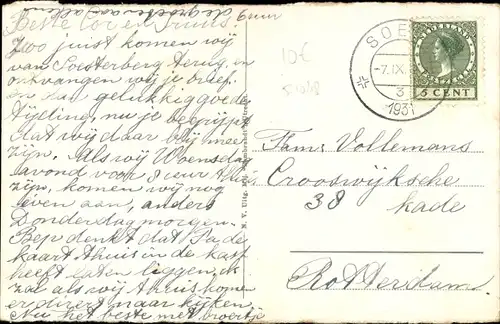 Beste Cor en Truus.
Zoo juist komen wij
van Soesterberg terug, en
ontvangen wij je brief
en een gelukkig goede
tijding, nu je begrijpt
dat wij daar blij mee
zijn. Als wij Woensdag
avond voor 8 uur thuis
zijn, komen wij nog
even aan, anders
Donderdagmorgen.
Bep denkt dat Pa de
kaart thuis in de kast
heeft laten liggen, ik
zal als wij thuis komen
er direct maar kijken,
Nu het beste met broertje
de groeten van allen
SOE
-7.IX.
3
1931
NEDERLAND
5 CENT
10€
N. V. Uitg. Mij.
Fam: Vollemans
Crooswijksche
38 kade
Rotterdam.